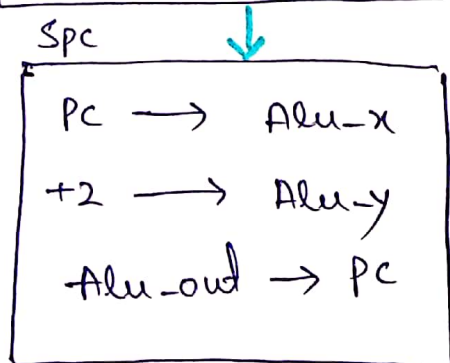 Spc
PC → Alu-x
+2 → Alu-y
Alu-out → PC